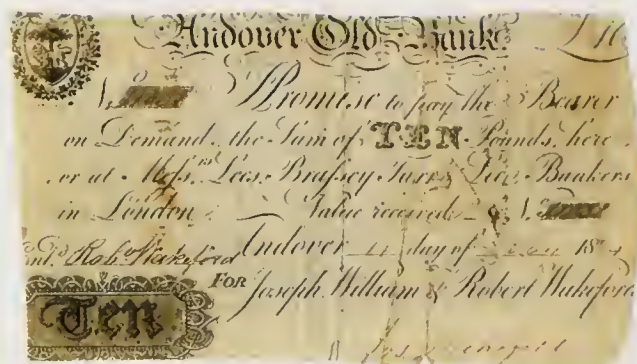 Andover Old Bank £10
Promise to pay the Bearer
on Demand, the Sum of TEN Pounds, here
or at Messrs. Lees, Brassey, Farr & Lees, Bankers
in London. Value received
Rob. Wakeford Andover day of 18
FOR Joseph, William & Robert Wakeford
Ten